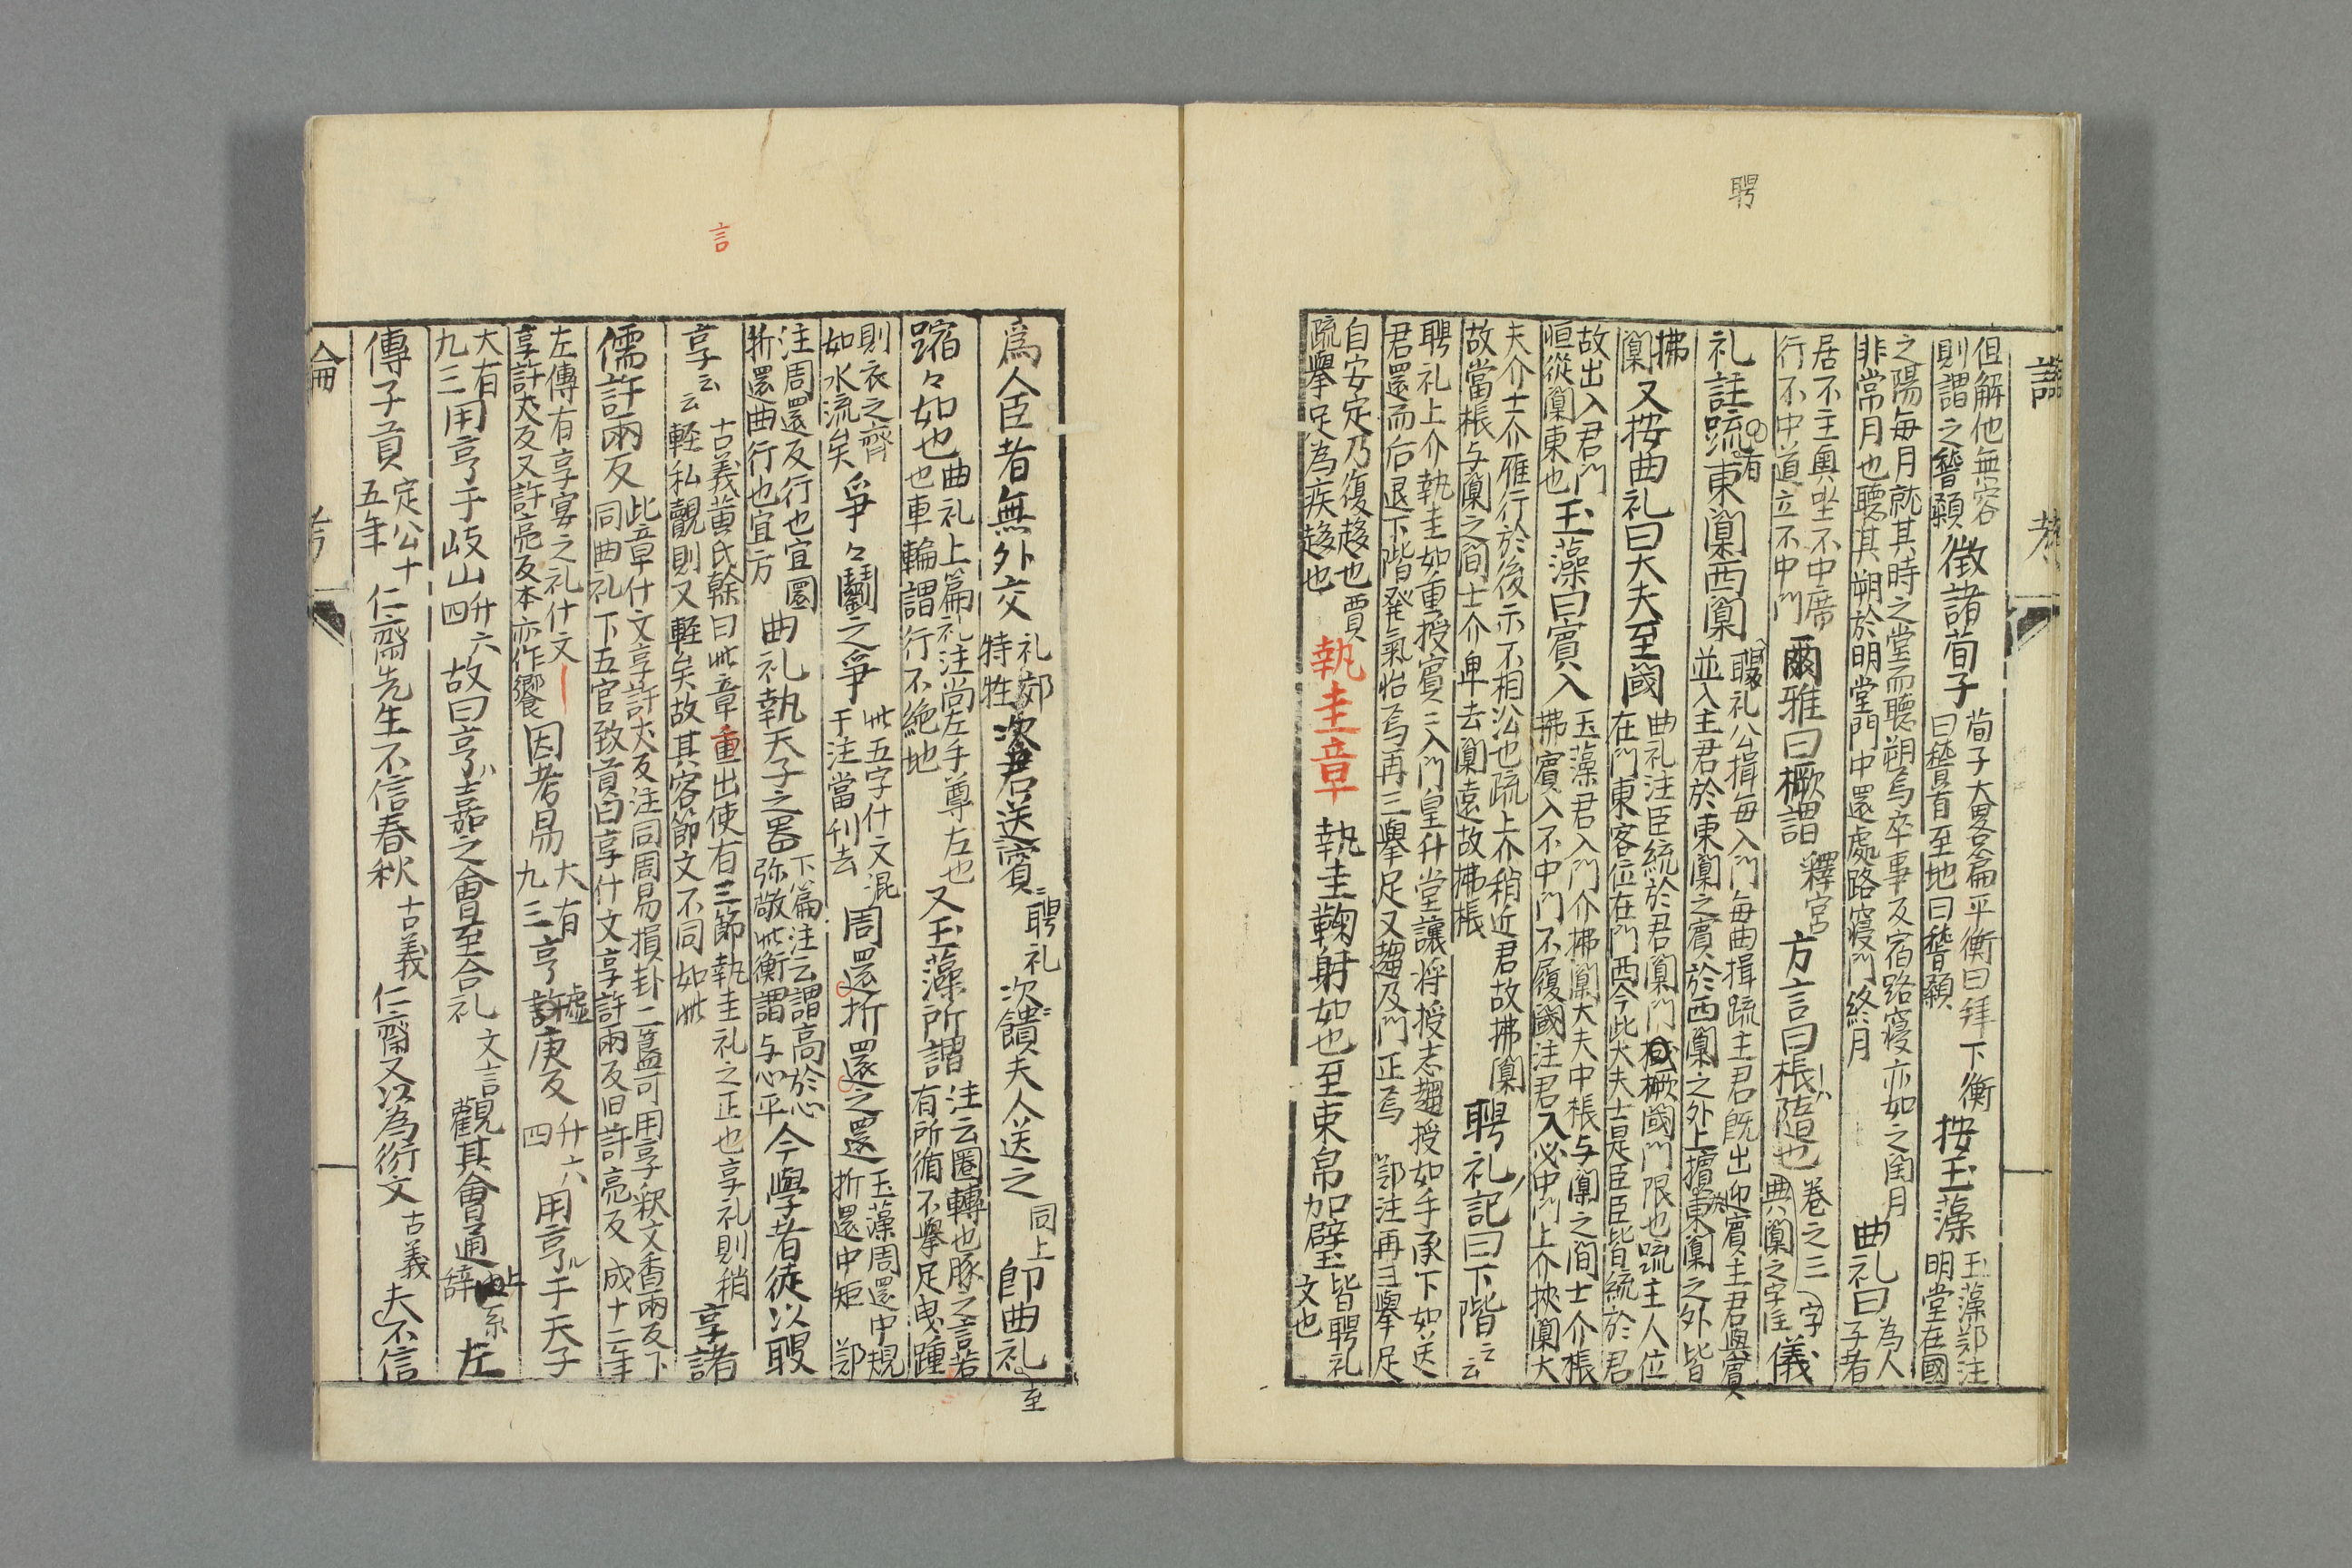 聘
語
考
但解他無容
則謂之稽顙
徴諸荀子
荀子大畧篇平衡曰拜下衡
曰稽首至地曰稽顙
按玉藻
玉藻鄭注
明堂在國
之陽毎月就其時之堂而聽朔焉卒事反宿路寝亦如之閏月
非常月也聽其朔於明堂門中還處路寝門終月
曲礼曰
為人
子者
居不主奥坐不中席
行不中道立不中門
爾雅曰橛謂
釋宮
方言曰棖隨也
卷之三
典闑之字
儀
礼註疏有東闑西闑
聘礼公揖毎入門毎曲揖疏主君既出迎賓主君與賓
並入主君於東闑之賓於西闑之外上擯東闑之外皆
拂
闑
又按曲礼曰大夫至國
曲礼注臣統於君闑門橛閾門限也疏主人位
在門東客位在門西今此大夫士是臣臣皆統於君
故出入君門
恒從闑東也
玉藻曰賓入
玉藻君入門介拂闑大夫中棖与闑之間士介拂棖
拂賓入不中門不履閾注君入必中門上介挾闑大
夫介士介雁行於後示不相沿也疏上介稍近君故拂闑
故當棖与闑之間士介卑去闑遠故拂棖
聘礼記曰下階
云云
聘礼上介執圭如重授賓云入門皇升堂讓将授志趨授如手承下如送
君還而后退下階発氣怡焉再三擧足又趨及門正焉 鄭注再三擧足
自安定乃復趍也賈
疏擧足為疾趍也
執圭章
執圭鞠躬如也至束帛加璧
皆聘礼
文也
言
為人臣者無外交
礼郊
特牲
次君送賓
聘礼
次饋夫人送之
同上
即曲礼
至
踧々如也
曲礼上篇礼注尚左手尊左也
也車輪謂行不絶地
又玉藻所謂
注云圈轉也豚之言若
有所循不擧足曳踵
則衣之齊
如水流矣
爭々鬭之爭
此五字什文混
于注當刊去
周還折還之還
玉藻周還中規
折還中矩 鄭
注周還反行也宜圜
折還曲行也宜方
曲礼執天子之器
下篇注云謂高於心
弥敬此衡謂与心平
今學者徒以聘
享云云
古義黄氏榦曰此章重出使有三節執圭礼之正也享礼則稍
軽私覿則又軽矣故其容節文不同如此
享諸
儒許兩反
此章什文享許丈反注同周易損卦二簋可用享釈文香兩反下
同曲礼下五官致貢曰享什文享許兩反旧許亮反 成十二年
左傳有享宴之礼什文
享許丈反又許亮反本亦作饗
因考易
大有
九三
亨
許庚反
升六
四
用亨于天子
大有
九三
用亨于岐山
升六
四
故曰亨嘉之會至合礼
文言
觀其會通
上系
辞
左
傳子貢
定公十
五年
仁齋先生不信春秋
古義
仁齋又以為衍文
古義
夫不信
論
考